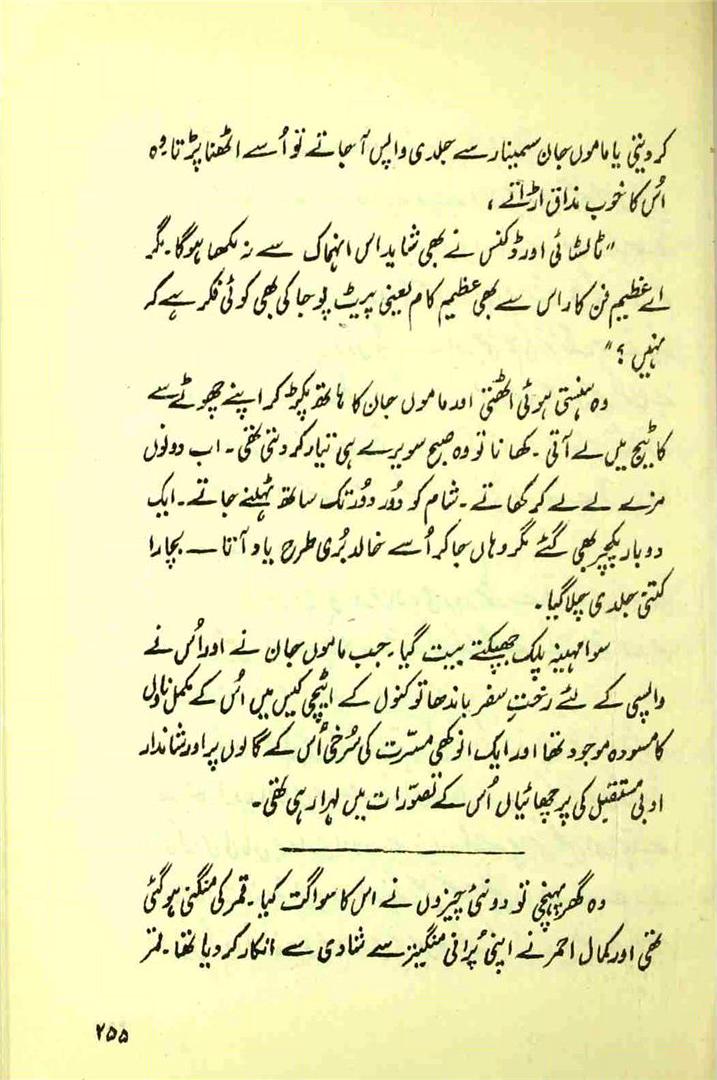 کر دیتی یا ماموں جان سمینار سے جلدی واپس آ جاتے تو اُسے اٹھنا پڑتا۔ وہ
اُس کا خوب مذاق اڑاتے ،
"ٹالسٹائی اور ڈکنس نے بھی شاید اس انہماک سے نہ لکھا ہوگا۔ مگر
اے عظیم فن کار اس سے بھی عظیم کام یعنی پیٹ پوجا کی بھی کوئی فکر ہے کہ
نہیں ؟"
وہ ہنستی ہوئی اٹھتی اور ماموں جان کا ہاتھ پکڑ کر اپنے چھوٹے سے
کاٹیج میں لے آتی۔ کھانا تو وہ صبح سویرے ہی تیار کر دیتی تھی۔ اب دونوں
مزے لے لے کر کھاتے۔ شام کو دُور دُور تک ساتھ ٹہلنے جاتے۔ ایک
دو بار پکچر بھی گئے مگر وہاں جا کر اُسے خالد بُری طرح یاد آتا — بچارا
کتنی جلدی چلا گیا۔
سوا مہینہ پلک جھپکتے بیت گیا۔ جب ماموں جان نے اور اُس نے
واپسی کے لئے رختِ سفر باندھا تو کنول کے اٹیچی کیس میں اُس کے مکمل ناول
کا مسودہ موجود تھا اور ایک انوکھی مسرّت کی سُرخی اُس کے گالوں پر اور شاندار
ادبی مستقبل کی پرچھائیاں اُس کے تصوّرات میں لہرا رہی تھی۔
وہ گھر پہنچی تو دو نئی چیزوں نے اس کا سواگت کیا۔ قمر کی منگنی ہو گئی
تھی اور کمال احمر نے اپنی پُرانی منگیتر سے شادی سے انکار کر دیا تھا۔ قمر
۲۵۵